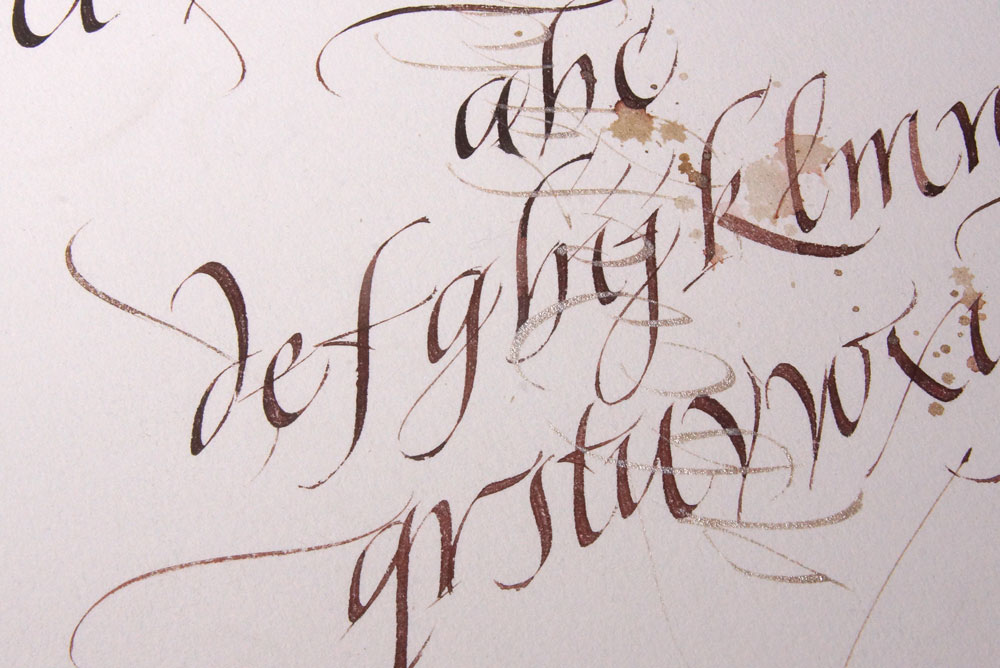 abc
defghijklmn
qrstuvwxy